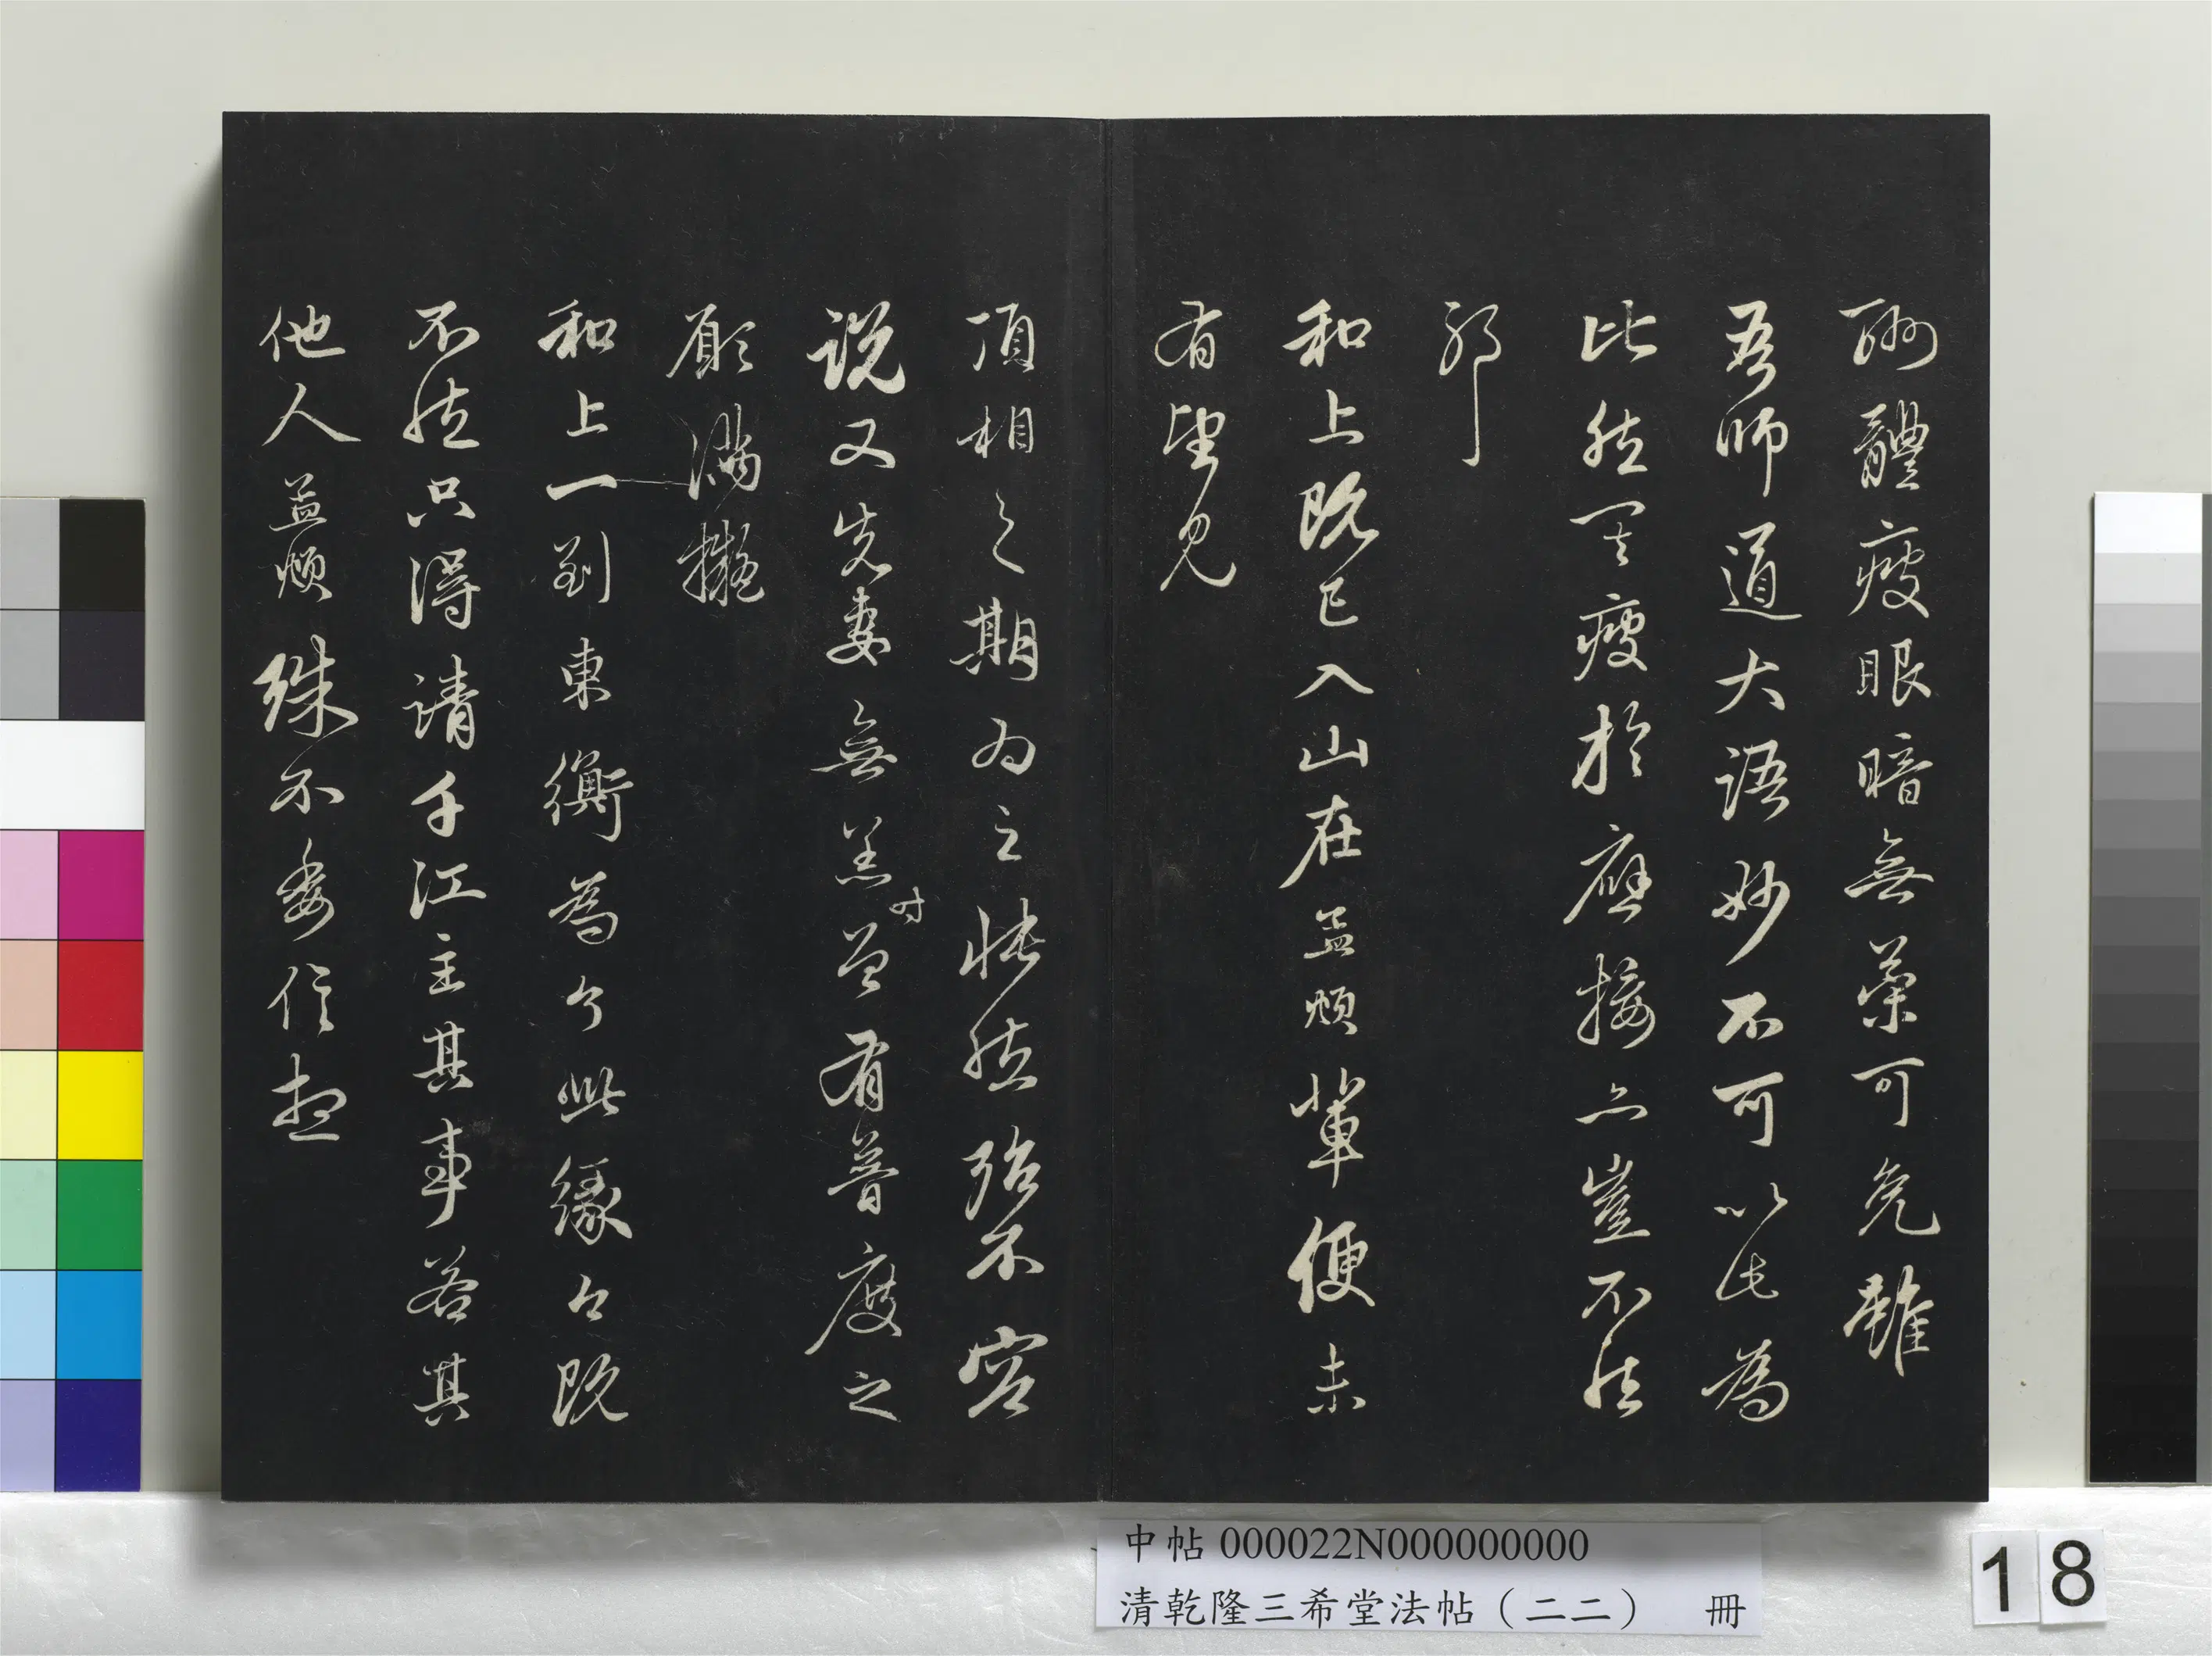 酬體疲眼暗無藥可免雖
吾師道大語妙不可以此為
比然某疲於應接亦豈不然
耶
和上既已入山在孟頫輩便未
有望見
頂相之期為之悵然殆不容
說又先妻無恙時曾有普度之
願滿擬
和上一到東衡為了此緣今既
不然只得請千江主其事若其
他人孟頫殊不委信想
中帖 000022N000000000
清乾隆三希堂法帖（二二） 冊
18